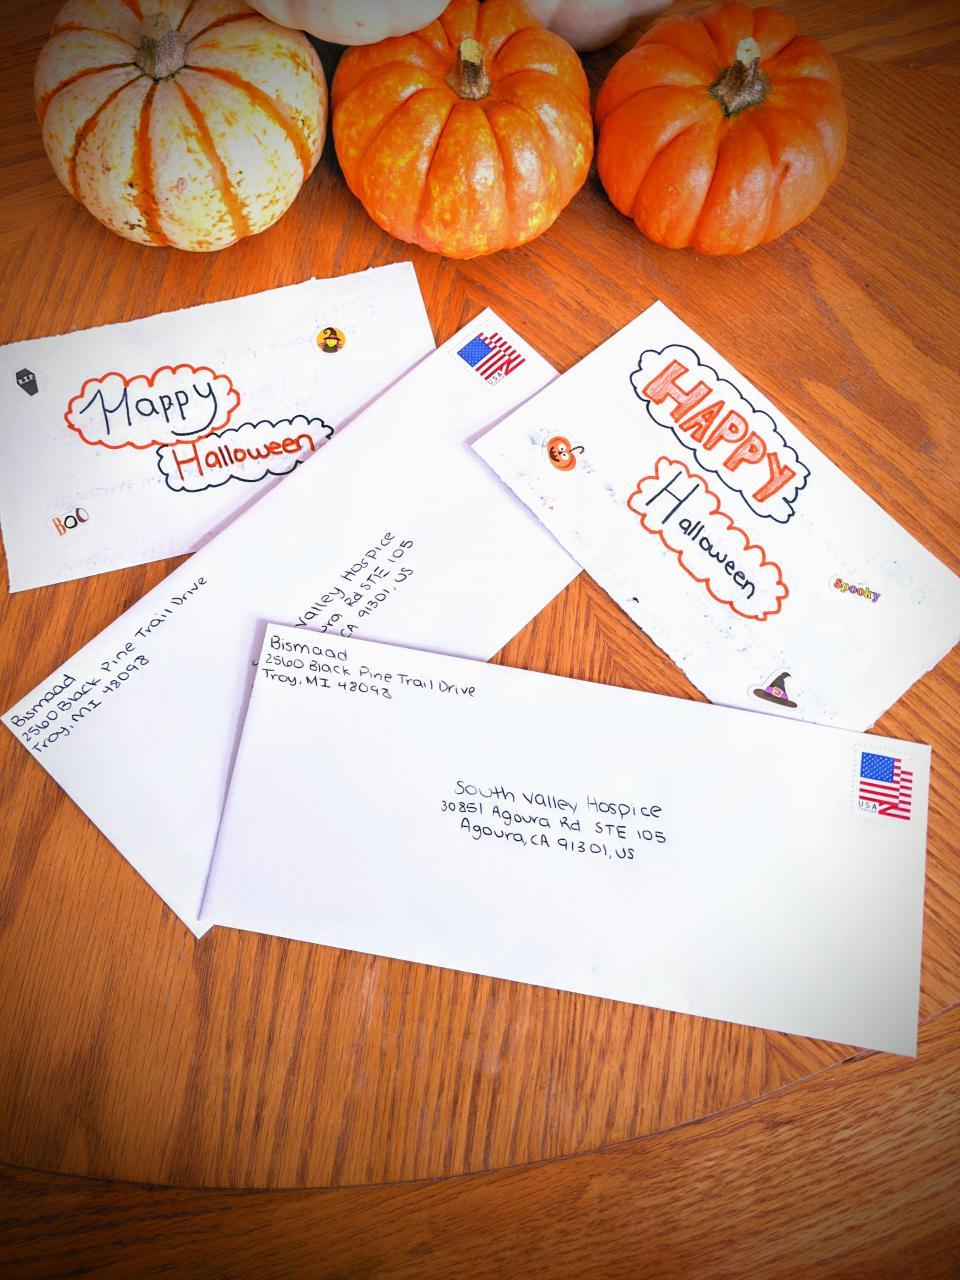 R.I.P
Happy
Halloween
BOO
USA
HAPPY
Halloween
spooky
Bismaad
2560 Black Pine Trail Drive
Troy, MI 48098
Valley Hospice
Rd STE 105
CA 91301, US
Bismaad
2560 Black Pine Trail Drive
Troy, MI 48098
USA
South Valley Hospice
30851 Agoura Rd STE 105
Agoura, CA 91301, US